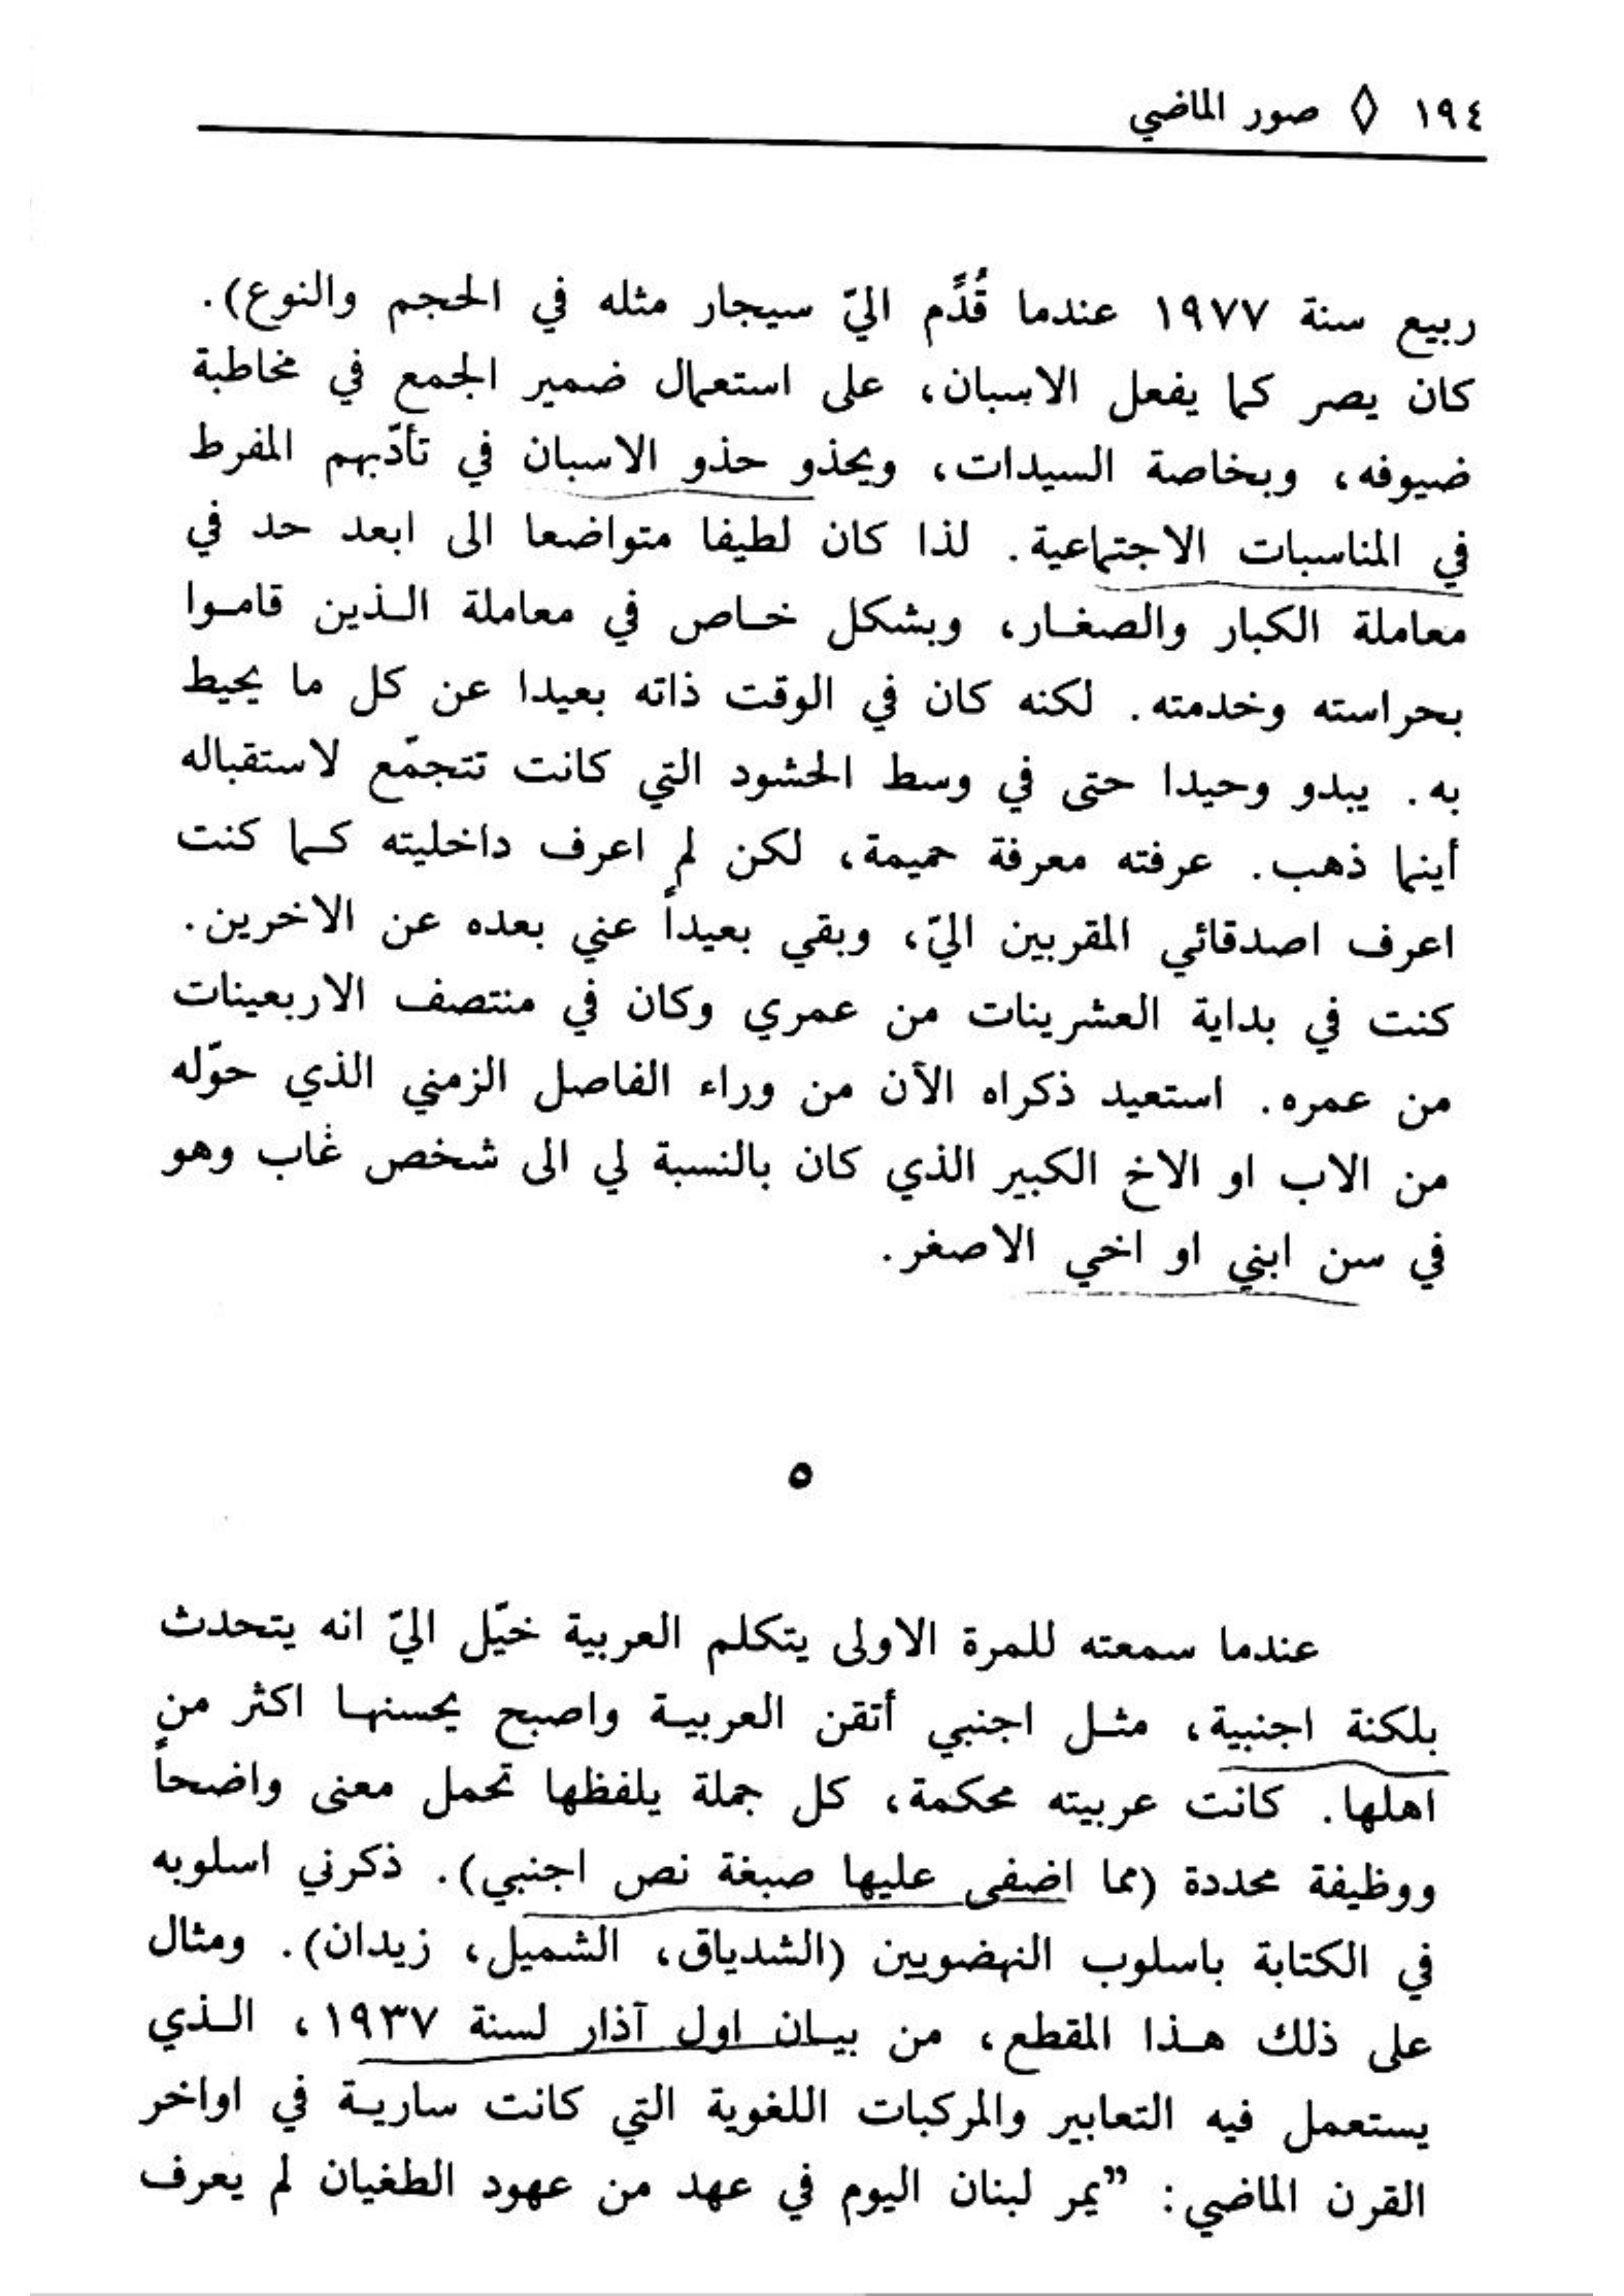 ١٩٤ ◊ صور الماضي
ربيع سنة ١٩٧٧ عندما قُدِّم اليّ سيجار مثله في الحجم والنوع).
كان يصر كما يفعل الاسبان، على استعمال ضمير الجمع في مخاطبة
ضيوفه، وبخاصة السيدات، ويحذو حذو الاسبان في تأدّبهم المفرط
في المناسبات الاجتماعية. لذا كان لطيفا متواضعا الى ابعد حد في
معاملة الكبار والصغـار، وبشكل خـاص في معاملة الـذين قامـوا
بحراسته وخدمته. لكنه كان في الوقت ذاته بعيدا عن كل ما يحيط
به. يبدو وحيدا حتى في وسط الحشود التي كانت تتجمّع لاستقباله
أينما ذهب. عرفته معرفة حميمة، لكن لم اعرف داخليته كـما كنت
اعرف اصدقائي المقربين اليّ، وبقي بعيداً عني بعده عن الاخرين.
كنت في بداية العشرينات من عمري وكان في منتصف الاربعينات
من عمره. استعيد ذكراه الآن من وراء الفاصل الزمني الذي حوّله
من الاب او الاخ الكبير الذي كان بالنسبة لي الى شخص غاب وهو
في سن ابني او اخي الاصغر.
٥
عندما سمعته للمرة الاولى يتكلم العربية خيّل اليّ انه يتحدث
بلكنة اجنبية، مثـل اجنبي أتقن العربيـة واصبح يحسنهـا اكثر من
اهلها. كانت عربيته محكمة، كل جملة يلفظها تحمل معنى واضحاً
ووظيفة محددة (مما اضفى عليها صبغة نص اجنبي). ذكرني اسلوبه
في الكتابة باسلوب النهضويين (الشدياق، الشميل، زيدان). ومثال
على ذلك هـذا المقطع، من بيـان اول آذار لسنة ١٩٣٧، الـذي
يستعمل فيه التعابير والمركبات اللغوية التي كانت ساريـة في اواخر
القرن الماضي: ”يمر لبنان اليوم في عهد من عهود الطغيان لم يعرف